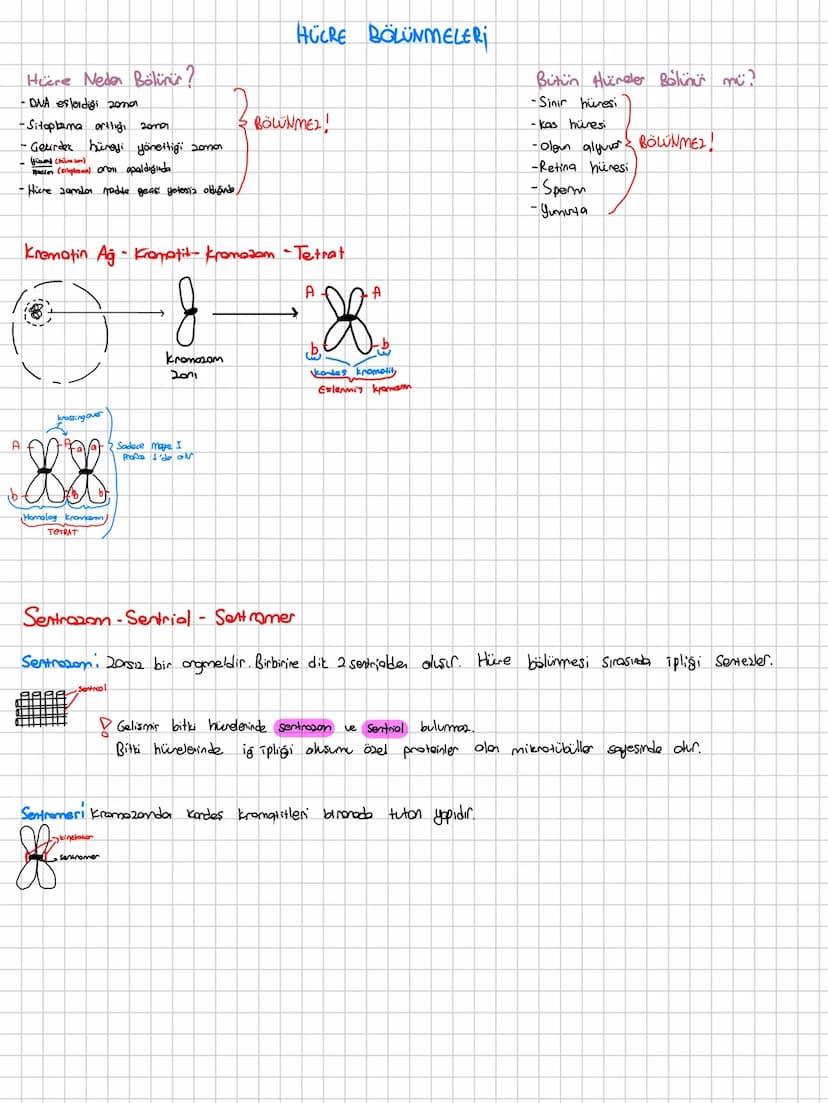 HÜCRE BÖLÜNMELERİ
Hücre Neden Bölünür?
- DNA eşlendiği zaman
- Sitoplazma arttığı zaman
- Çekirdek hücreyi yönettiği zaman
- Yüzey (hücre zarı)
(sitoplazma) oranı azaldığında
- Hücre zarından madde geçişi yetersiz olduğunda
BÖLÜNMEZ!
Bütün Hücreler Bölünür mü?
- Sinir hücresi
- Kas hücresi
- Olgun alyuvar
- Retina hücresi
- Sperm
- Yumurta
BÖLÜNMEZ!
Kromatin Ağ - Kromatit - Kromozom - Tetrat
Kromozom
A A
b b
kardeş kromatit
Eşlenmiş kromozom
krossing over
A A a a
b B b
Sadece Mayoz I
Profaz I'de olur
Homolog Kromozom
TETRAT
Sentrozom - Sentriol - Sentromer
Sentrozom: Zarsız bir organeldir. Birbirine dik 2 sentriolden oluşur. Hücre bölünmesi sırasında ipliği sentezler.
sentriol
! Gelişmiş bitki hücrelerinde sentrozom ve sentriol bulunmaz.
Bitki hücrelerinde iğ ipliği oluşumu özel proteinler olan mikrotübüller sayesinde olur.
Sentromer: Kromozomda kardeş kromatitleri bir arada tutan yapıdır.
kinetokor
sentromer